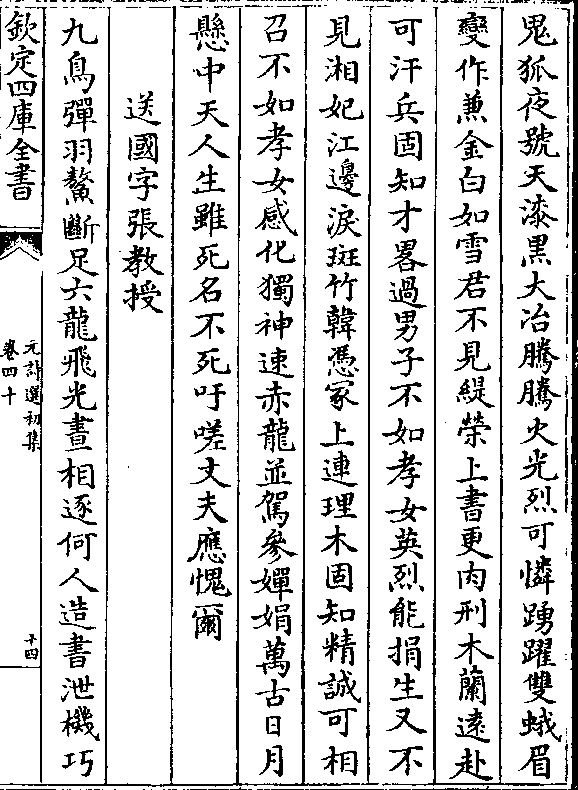 鬼狐夜號天漆黑大冶騰騰火光烈可憐踴躍雙蛾眉
變作兼金白如雪君不見緹縈上書更肉刑木蘭遠赴
可汗兵固知才畧過男子不如孝女英烈能捐生又不
見湘妃江邊淚斑竹韓憑冢上連理木固知精誠可相
召不如孝女感化獨神速赤龍並駕參嬋娟萬古日月
懸中天人生雖死名不死吁嗟丈夫應愧爾
送國字張教授
九烏彈羽鰲斷足六龍飛光晝相逐何人造書泄機巧
欽定四庫全書
元詩選初集
卷四十
十四